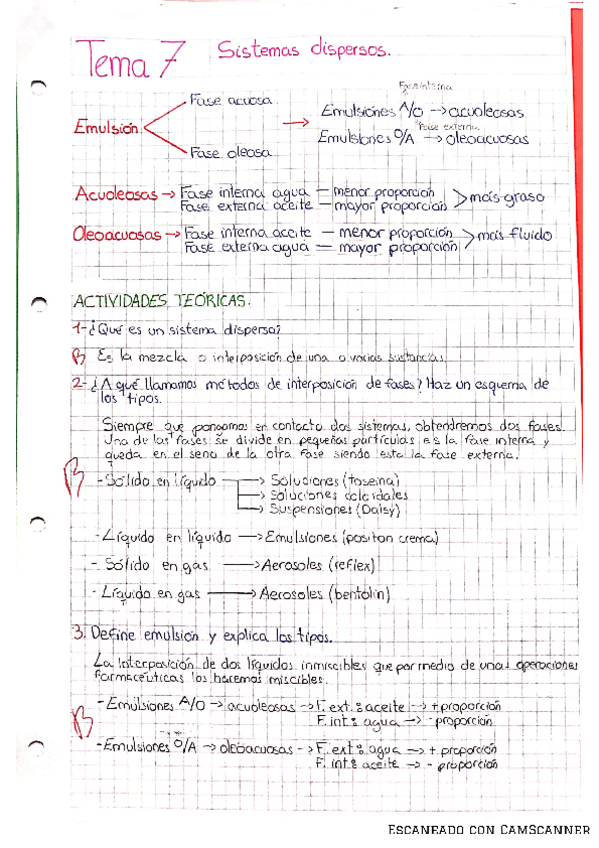 Tema 7 Sistemas dispersos.
Fase interna
Fase acuosa
Emulsiones A/O → acuoleosas
Emulsión → Fase externa
Emulsiones O/A → oleoacuosas
Fase oleosa
Acuoleosas → Fase interna agua — menor proporción
Fase externa aceite — mayor proporción > más graso
Oleoacuosas → Fase interna aceite — menor proporción > más fluido
Fase externa agua — mayor proporción
ACTIVIDADES TEÓRICAS.
1- ¿Qué es un sistema disperso?
B Es la mezcla o interposición de una o varias sustancias.
2- ¿A qué llamamos métodos de interposición de fases? Haz un esquema de
los tipos.
Siempre que pongamos en contacto dos sistemas, obtendremos dos fases.
Una de las fases se divide en pequeñas partículas, es la fase interna y
queda en el seno de la otra fase siendo esta la fase externa.
B - Sólido en líquido → Soluciones (toseina)
→ Soluciones coloidales
→ Suspensiones (Daisy)
- Líquido en líquido → Emulsiones (positon crema)
- Sólido en gas → Aerosoles (reflex)
- Líquido en gas → Aerosoles (bentolin)
3. Define emulsión y explica los tipos.
La interposición de dos líquidos inmiscibles que por medio de unas operaciones
farmacéuticas los hacemos miscibles.
- Emulsiones A/O → acuoleosas → F. ext.: aceite → + proporción
B F. int: agua → - proporción
- Emulsiones O/A → oleoacuosas → F. ext: agua → + proporción
F. int: aceite → - proporción
ESCANEADO CON CAMSCANNER